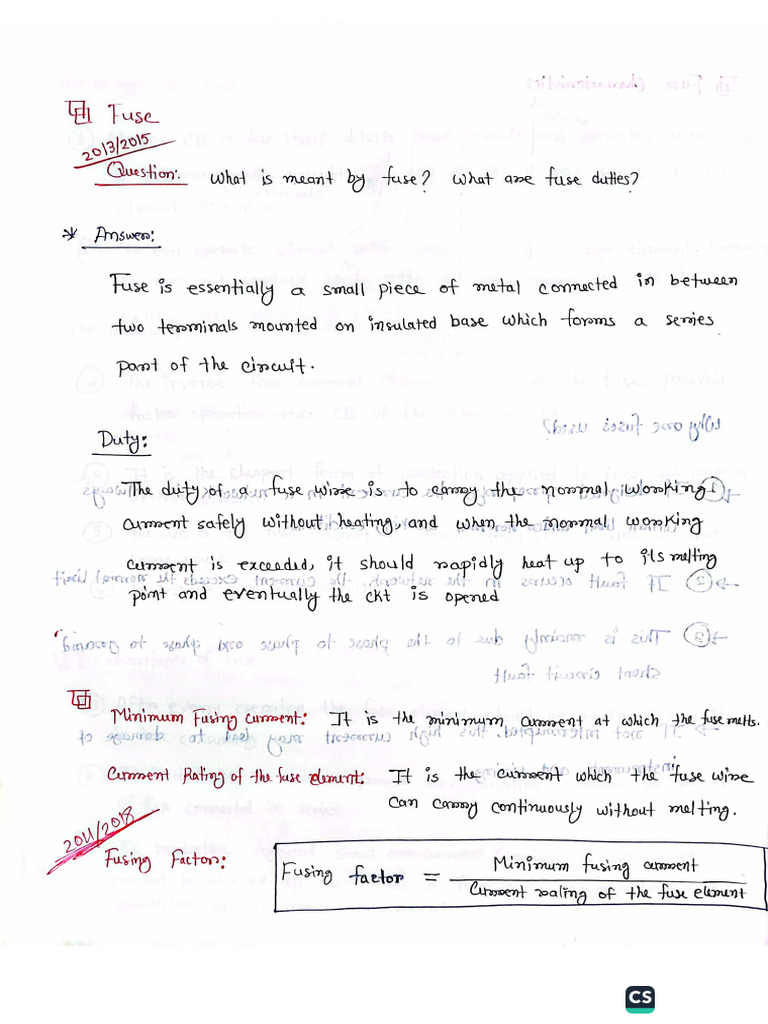 Fuse
2013/2015
Question: What is meant by fuse? What are fuse duties?
* Answer:
Fuse is essentially a small piece of metal connected in between
two terminals mounted on insulated base which forms a series
part of the circuit.
Duty:
The duty of a fuse wire is to carry the normal working
current safely without heating, and when the normal working
current is exceeded, it should rapidly heat up to its melting
point and eventually the ckt is opened
Minimum Fusing current: It is the minimum current at which the fuse melts.
Current Rating of the fuse element: It is the current which the fuse wire
can carry continuously without melting.
2011/2018
Fusing Factor:
Fusing factor = Minimum fusing current
Current rating of the fuse element
CS